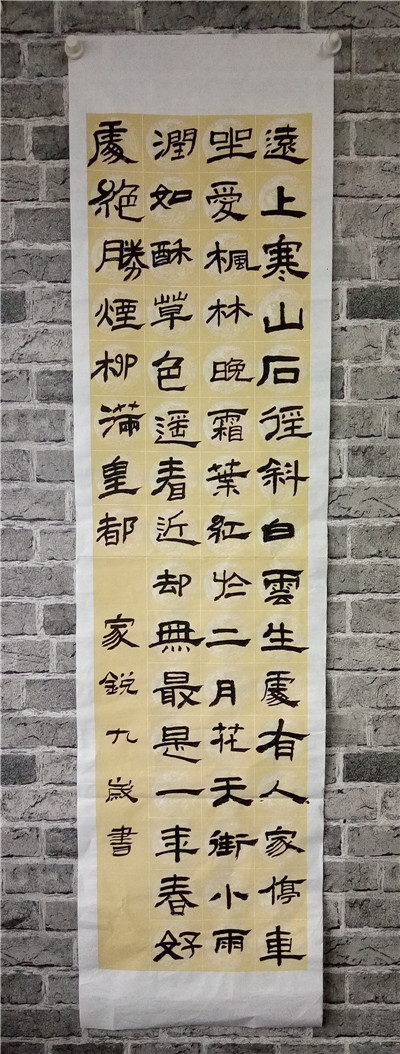 遠上寒山石徑斜白雲生處有人家停車
坐愛楓林晚霜葉紅於二月花天街小雨
潤如酥草色遥看近却無最是一年春好
處絕勝煙柳滿皇都
家銳九歲書